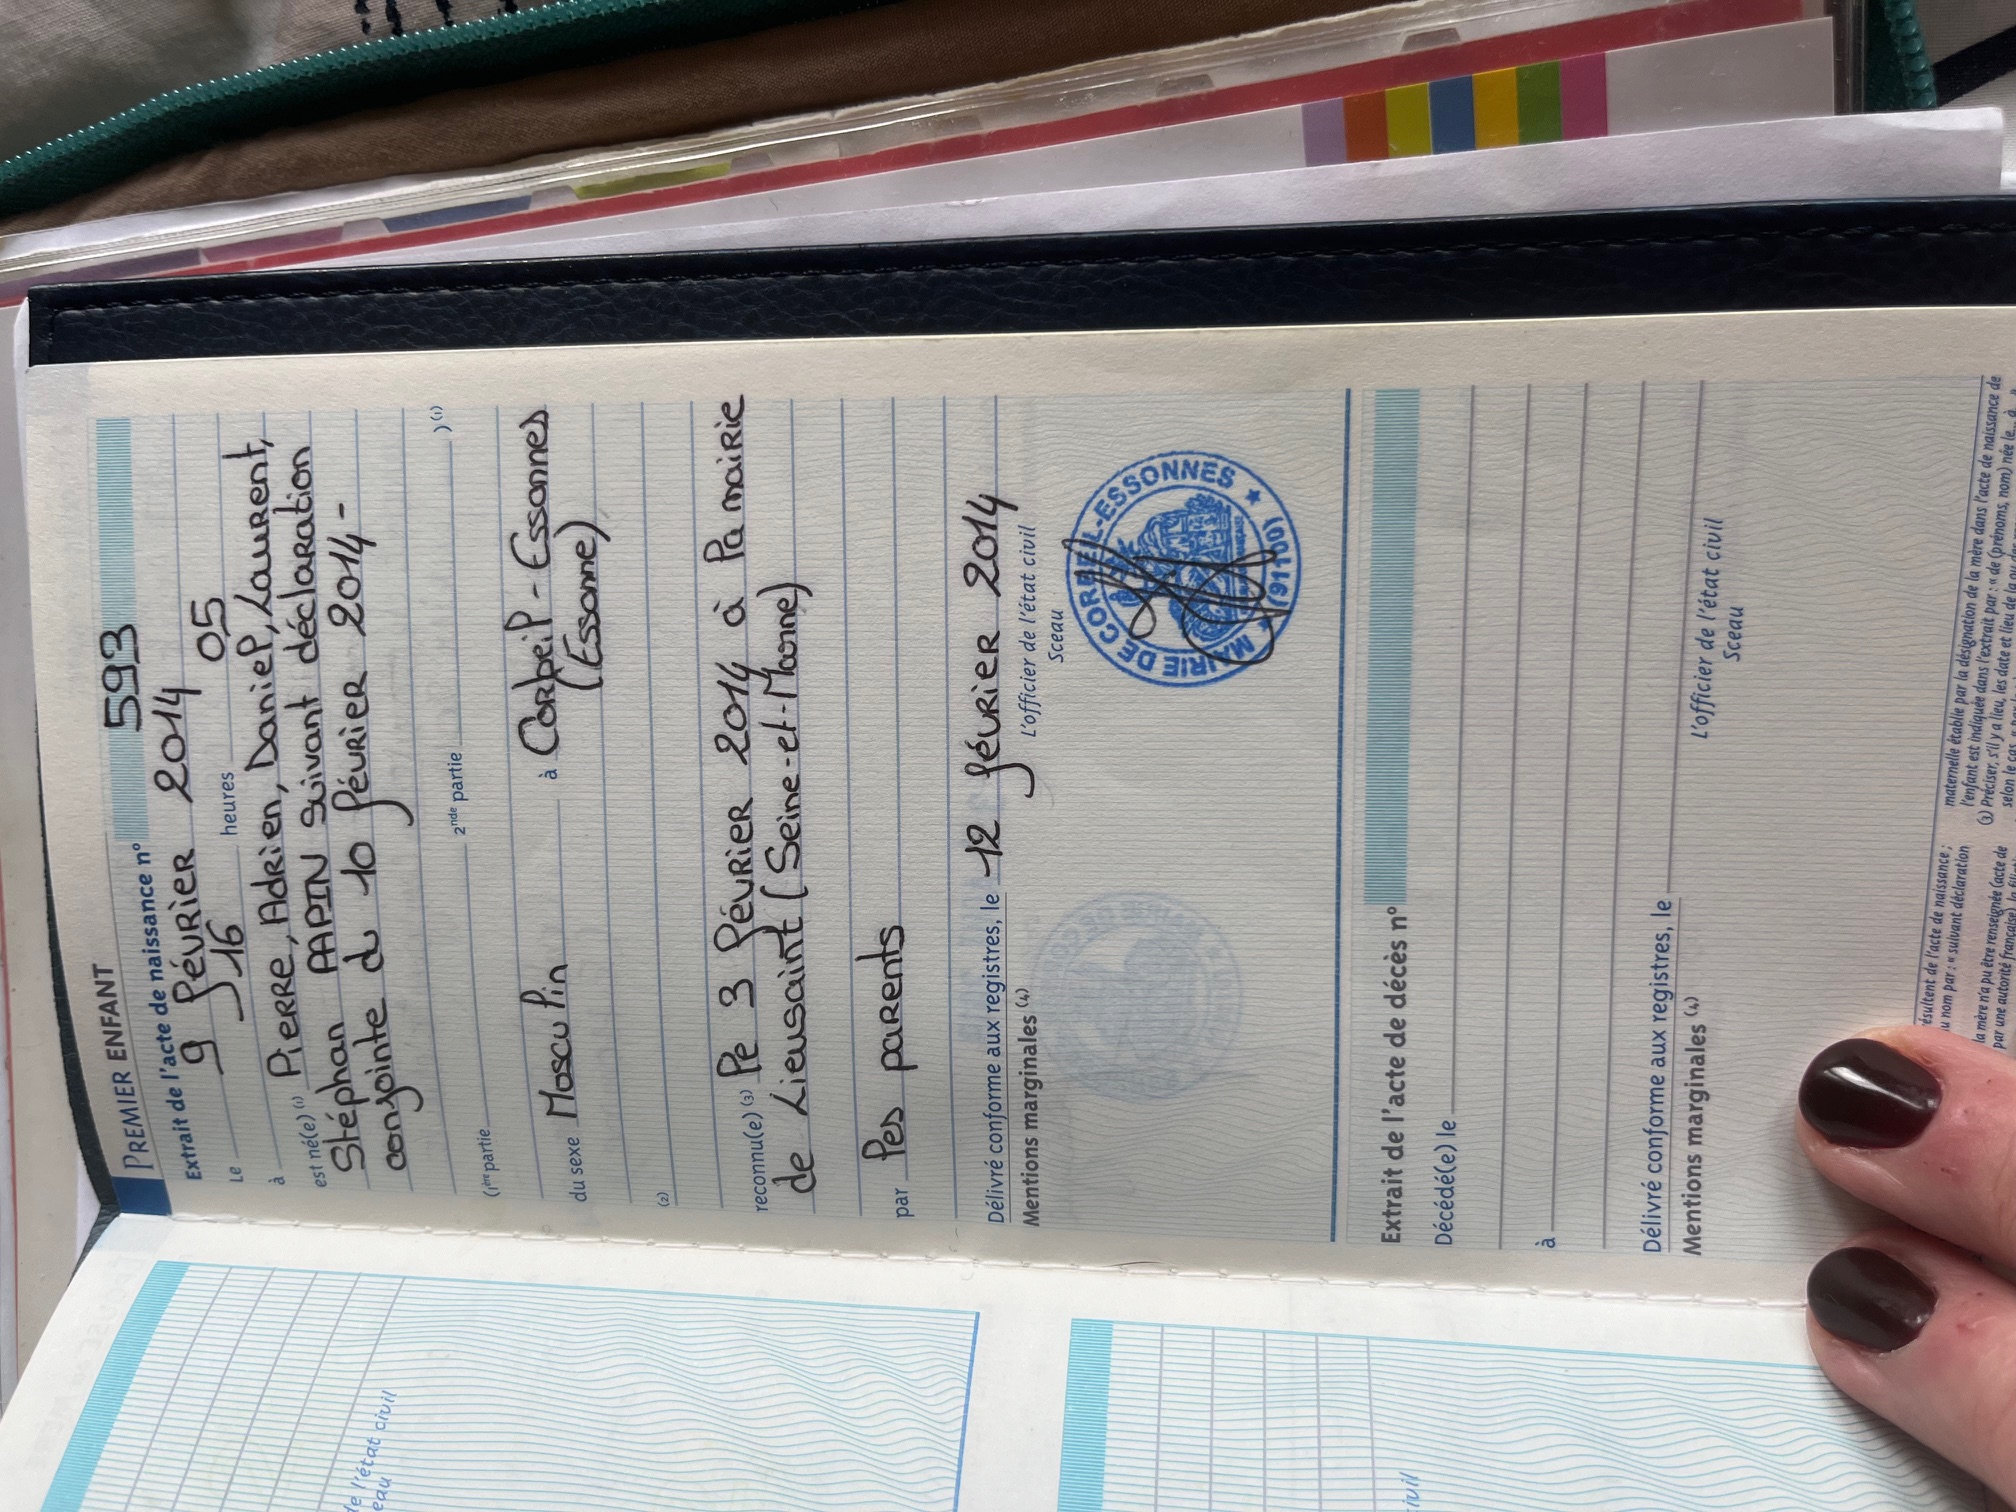 PREMIER ENFANT
Extrait de l'acte de naissance n° 593
Le 9 février 2014
à 16 heures 05
est né(e) (1) Pierre, Adrien, Daniel, Laurent,
Stéphan PAPIN suivant déclaration
conjointe du 10 février 2014 -
(1ère partie 2nde partie ) (1)
du sexe Masculin à Corbeil-Essonnes
(Essonne)
(2)
reconnu(e) (3) le 3 février 2014 à la mairie
de Lieusaint (Seine-et-Marne)
par les parents
Délivré conforme aux registres, le 12 février 2014
Mentions marginales (4)
L'officier de l'état civil
Sceau
MAIRIE DE CORBEIL-ESSONNES ★ (91100) ★
Extrait de l'acte de décès n°
Décédé(e) le
à
Délivré conforme aux registres, le
Mentions marginales (4)
L'officier de l'état civil
Sceau
résultent de l'acte de naissance ;
nom par : « suivant déclaration
la mère n'a pu être renseignée (acte de
par une autorité française)
maternelle établie par la désignation de la mère dans l'acte de naissance de
l'enfant est indiquée dans l'extrait par : « de (prénoms, nom) née le... à... »
(3) Préciser, s'il y a lieu, les date et lieu de la
selon le cas
de l'état civil
eau
ivil